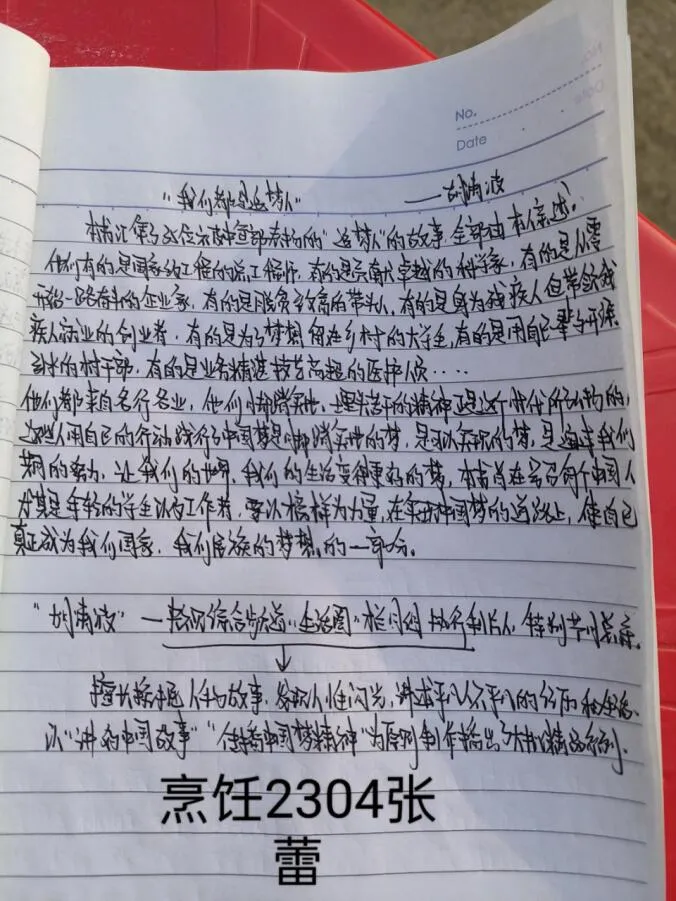 No.
Date
"我们都是追梦人" ——胡清波
本书汇集了数位示范中宣部表扬的"追梦人"的故事,全部由本人亲述。
他们有的是国家级工程的总工程师,有的是贡献卓越的科学家,有的是从零
开始一路奋斗的企业家,有的是脱贫致富的带头人,有的是身为残疾人但带领残
疾人就业的创业者,有的是为了梦想留在乡村的大学生,有的是用自己
的村干部,有的是业务精湛技艺高超的医护人员····
他们都来自各行各业,他们脚踏实地,埋头苦干的精神正是这个时代所的,
这些人用自己的行动践行了中国梦是脚踏实地的梦,是的梦,是我们
的努力,让我们的世界,我们的生活变得更好的梦,本书旨在每个中国人
尤其是年轻的学生以及工作者,要以榜样为力量,在实现中国梦的道路上,使自己
真正成为我们国家,我们民族的梦想的一部分。
"胡清波"—综合频道"生活圈"栏目组执行制片人,特别节目
↓
擅长挖掘人物故事,发现人性闪光,讲述平凡人不平凡的经历和生活。
以"讲好中国故事""传播中国梦精神"为原则制作播出大批精品系列。
烹饪2304张
蕾